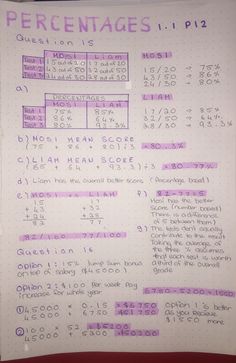 PERCENTAGES 1.1 P12
Question 15
MOSI LIAM
Test 1 15 out of 20 17 out of 20
Test 2 43 out of 50 32 out of 50
Test 3 24 out of 30 28 out of 30
MOSI
15/20 → 75%
43/50 → 86%
24/30 → 80%
a)
PERCENTAGES
MOSI LIAM
Test 1 75% 85%
Test 2 86% 64%
Test 3 80% 93.3%
LIAM
17/20 → 85%
32/50 → 64%
28/30 → 93.3%
b) MOSI MEAN SCORE
(75 + 86 + 80) ÷ 3 = 80.3%
c) LIAM MEAN SCORE
(85 + 64 + 93.3) ÷ 3 = 80.77%
d) Liam has the overall better score (Percentage based)
e) MOSI vs LIAM
15 17
43 32
+ 24 + 28
82 77
82/100 77/100
f) 82 - 77 = 5
Mosi has the better
score (number based)
There is a difference
of 5 between them
g) The tests don't equally
contribute to the result
Taking the average of
the three % assumes
that each test is worth
a third of the overall
grade
Question 16
Option 1: 15% lump sum bonus
on top of salary ($45000)
Option 2: $100 per week pay
increase for whole year
6750 - 5200 = 1550
① 45000 × 0.15 = $6750
45000 + 6750 = $51750
Option 1 is better
as you receive
$1550 more
② 100 × 52 = $5200
45000 + 5200 = $50200